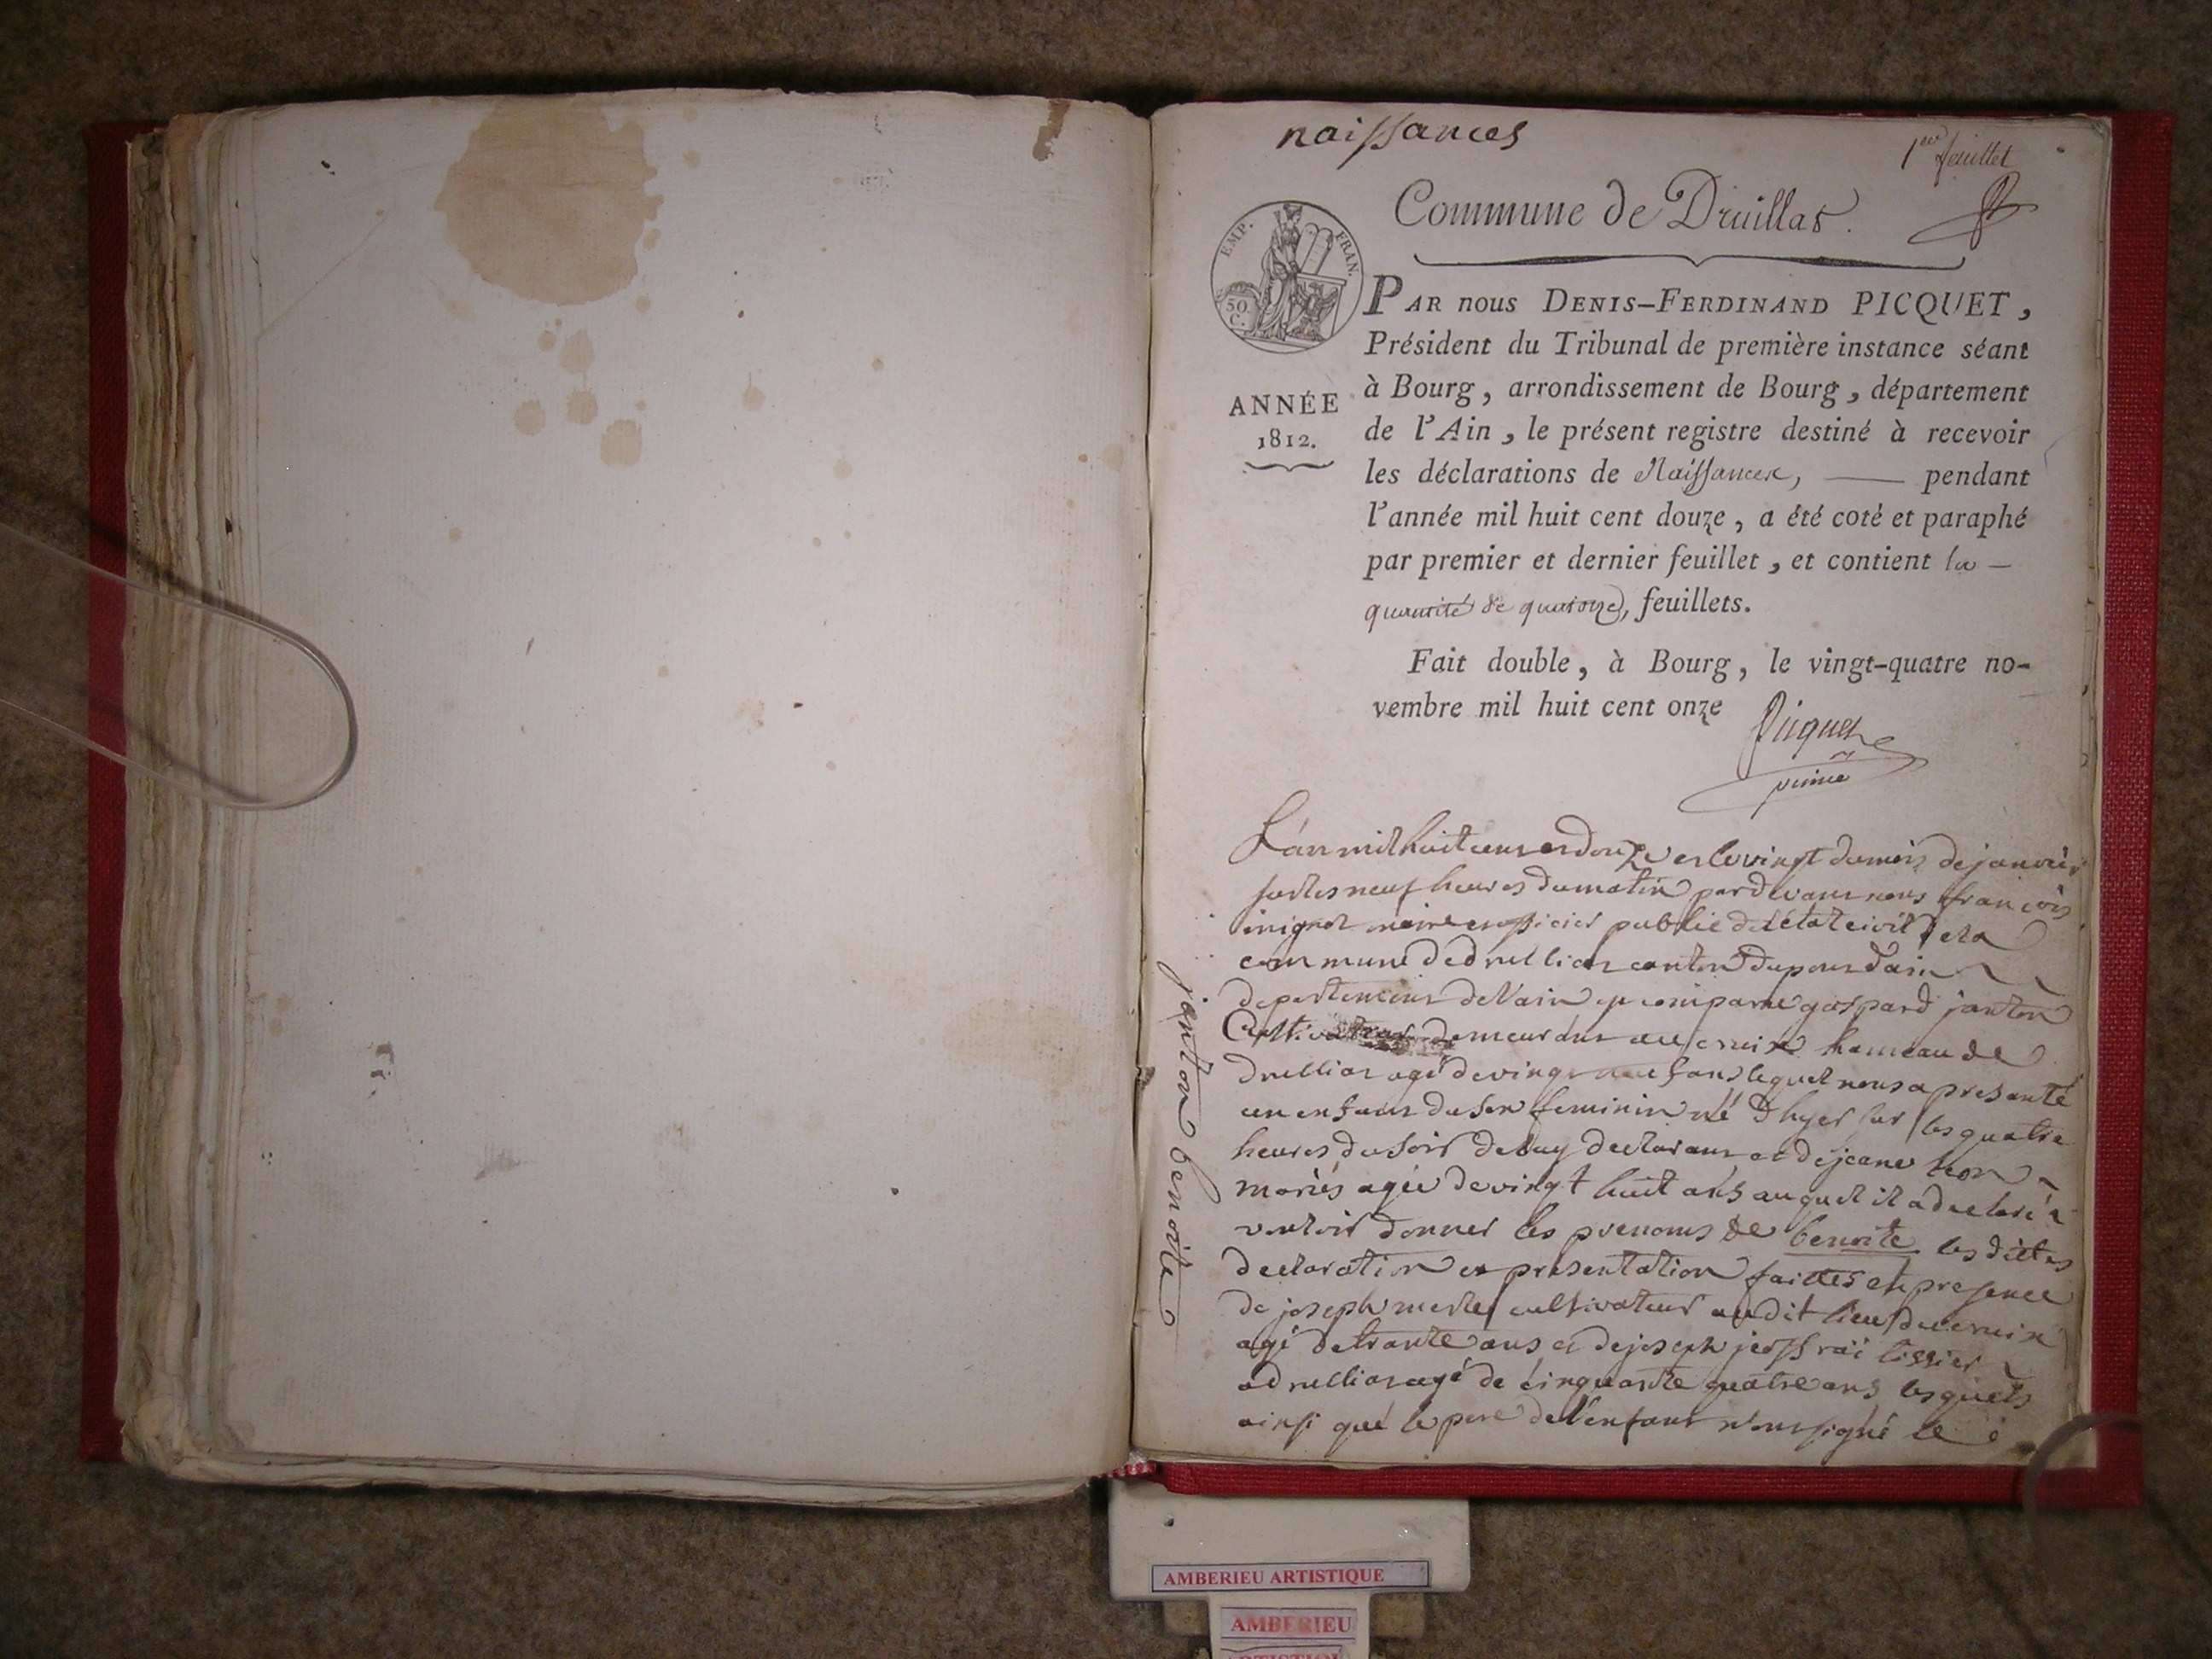 naissances
1er feuillet
Commune de Druillas.
EMP. FRAN.
50 C.
ANNÉE
1812.
PAR nous DENIS-FERDINAND PICQUET,
Président du Tribunal de première instance séant
à Bourg, arrondissement de Bourg, département
de l'Ain, le présent registre destiné à recevoir
les déclarations de Naissances, — pendant
l'année mil huit cent douze, a été coté et paraphé
par premier et dernier feuillet, et contient la —
quantité de quatorze, feuillets.
Fait double, à Bourg, le vingt-quatre no-
vembre mil huit cent onze
Picquet
L'an mil huit cens et douze et le vingt du mois de janvier
sur les neuf heures du matin par devant nous françois
maire et officier public de l'état civil de la
commune de druillias canton du pont d'ain
departement de l'ain est comparu gaspard janton
Cultivateur demeurant au cruix hameau de
druillias agé de vingt neuf ans lequel nous a presanté
un enfant du sex feminin né d'hyer sur les quatre
heures du soir de luy declarant et de jeane
mariés agée de vingt huit ans auquel il a declaré
vouloir donner les prenoms de benoite les dittes
declaration et presentation faittes en presence
de joseph merle cultivateur audit lieu du cruix
agé de trante ans et de joseph tissier
a druillias agé de cinquante quatre ans lesquels
ainsi que le pere de l'enfant n'ont signé
janton benoite
AMBERIEU ARTISTIQUE
AMBERIEU
ARTISTIQUE